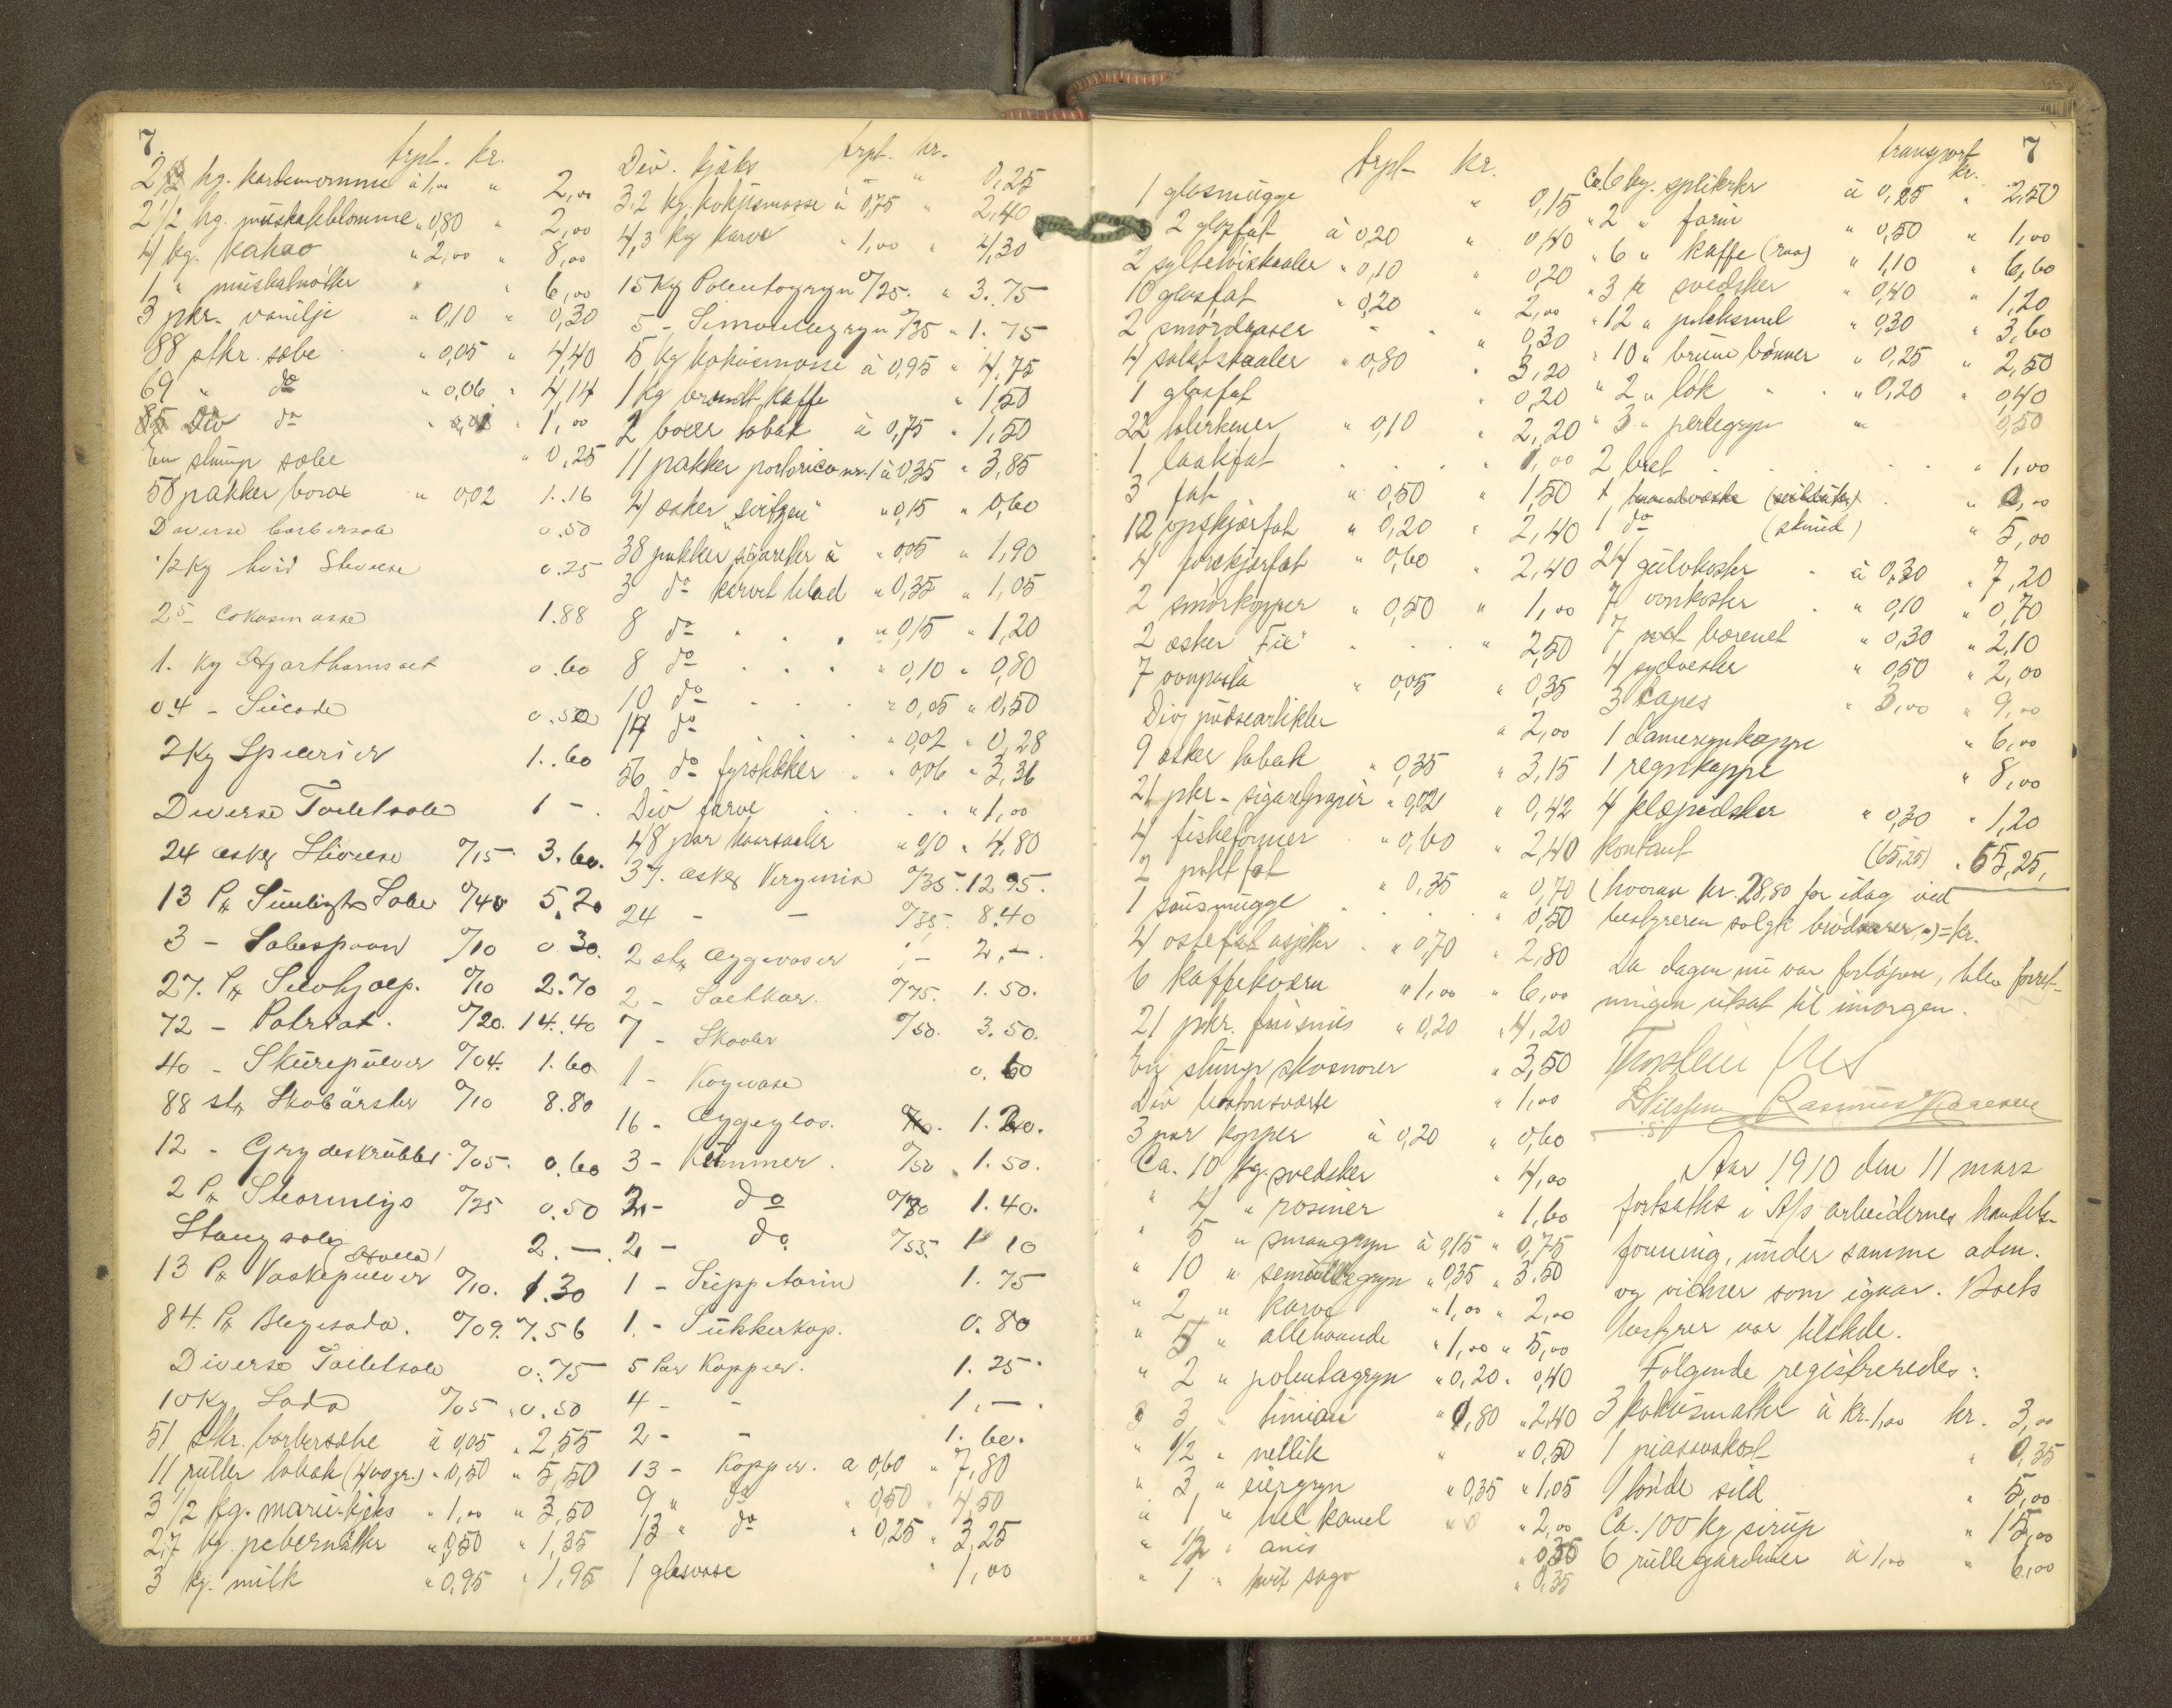 7.
trpt. kr.
2 hg. kardemomme à 1,00 " 2,00
2 1/2 hg. muskatblomme " 0,80 " 2,00
4 kg. kakao " 2,00 " 8,00
1 " muskatnötter " " 6,00
3 pkr. vanilje " 0,10 " 0,30
88 stkr. sæbe " 0,05 " 4,40
69 " do " 0,06 " 4,14
Div do " 1,00
En slump sæbe " 0,25
58 pakker borax " 0,02 1.16
Diverse barbersæbe 0.50
1/2 Kg hvid Stivelse 0.25
25 - Cokosmasse 1.88
1. Kg Hjorthornsalt 0.60
0.4 - Sucade 0.50
2 Kg Spicerier 1.60
Diverse Toiletsæbe 1 -
24 æsker Stivelse 0/15 3.60.
13 Pk Sunlight Sæbe 0/40 5.20
3 - Sæbespaan 0/10 0 30.
27. Pk Selvhjælp. 0/10 2.70
72 - Potrtat. 0/20. 14.40
40 - Skurepulver 0/04. 1.60
88 stk Skobörster 0/10 8.80
12 - Grydeskrubber 0/05. 0.60
2 Pk Stormlys 0/25 0.50
Stang sæbe 2.—
13 Pk Vaskepulver 0/10. 1.30
84. Pk Blegesoda. 0/09. 7.56
Diverse Toiletsæbe 0.75
10 Kg Soda 0/05 0.50
51 stkr. barbersæbe à 0,05 " 2,55
11 ruller tobak (400 gr.) " 0,50 " 5,50
3 1/2 kg. marie-kjeks " 1,00 " 3,50
2,7 kg. pebernötter " 0,50 " 1,35
3 kg. milk " 0,95 " 1,95
trpt. kr.
Div. kjæks " 0,25
3,2 kg. kokusmasse à 0,75 " 2,40
4,3 kg karve " 1,00 " 4,30
15 Kg Polentagryn 0/25. " 3.75
5 - Simouillegryn 0/35 " 1.75
5 kg kokusmasse à 0,95 " 4,75
1 kg brændt kaffe " 1,50
2 boxer tobak à 0,75 " 1,50
11 pakker portorico nr. 1 à 0,35 " 3,85
4 æsker " " 0,15 " 0,60
38 pakker sigaretter à " 0,05 " 1,90
3 do karvet blad " 0,35 " 1,05
8 do " " " 0,15 " 1,20
8 do " " " 0,10 " 0,80
10 do " 0,05 " 0,50
14 do " 0,02 " 0,28
56 do fyrstikker " " 0,06 " 3,36
Div farve " 1,00
48 par haarnaaler " 0,10 " 4,80
37. æsker Virginia 0/35. 12 95.
24 - - 0/35. 8.40
2 stk Æggevaser 2.-.
2 - Saltkar. 0/75. 1.50.
7 - Skaaler 0/50. 3.50.
1 - Kogvase 0.60
16 - Æggeglas. 1.20.
3 - Kummer. 0/50 1.50.
2 - do 0/80 1.40.
2 - do. 0/55. 1 10
1 - Supptarin 1.75
1. - Sukkerkop. 0.80
5 Par Kopper. 1.25.
4 - - 1.-.
2 - - 1.60.
13 - Kopper. a 0,60 " 7,80
9 " do " 0,50 " 4,50
13 " do " 0,25 " 3,25
1 glasvase " 1,00
trpt- kr.
1 glasmugge " 0,15
2 glasfat à 0,20 " 0,40
2 sylteköiskaaler " 0,10 " 0,20
10 glasfat " 0,20 " 2,00
2 smördaaser " " 0,30
4 salatskaaler " 0,80 " 3,20
1 glasfat " 0,20
22 tallerkener " 0,10 " 2,20
1 laakfat " 1,00
3 fat " 0,50 " 1,50
12 opskjærfat " 0,20 " 2,40
4 forskjærfat " 0,60 " 2,40
2 smörkopper " 0,50 " 1,00
2 æsker "Fix" " 2,50
7 ovnpusta " 0,05 " 0,35
Div pudseartikler " 2,00
9 æsker tobak " 0,35 " 3,15
21 pkr. sigaretpapir " 0,02 " 0,42
4 fiskeformer " 0,60 " 2,40
2 fat " 0,35 " 0,70
1 sausmugge " 0,50
4 ostefat asjetter " 0,70 " 2,80
6 Kaffekværn " 1,00 " 6,00
21 pkr. " 0,20 " 4,20
En slump skosnorer " 3,50
Div " 1,00
3 par kopper à 0,20 " 0,60
Ca. 10 kg. svedsker " 4,00
" 4 " rosiner " 1,60
" 5 " smaagryn à 0,15 " 0,75
" 10 " semullegryn " 0,35 " 3.50
" 2 " karve " 1,00 " 2,00
" 5 " allehaande " 1,00 " 5,00
" 2 " polentagryn " 0,20 " 0,40
3 " timian " 0,80 " 2,40
" 1/2 " nellik " " 0,50
" 3 " eiergryn " 0,35 " 1,05
" 1 " hel kanel " 2,00
" 1/2 " anis " 0,35
" 1 " hvit sago " 0,35
transport kr. 7
Ca 6 kg. spliterter à 0,25 " 2,50
" 2 " farin " 0,50 " 1,00
" 6 " kaffe (raa) " 1,10 " 6,60
" 3 " svedsker " 0,40 " 1,20
" 12 " potetmel " 0,30 " 3,60
" 10 " brune bönner " 0,25 " 2,50
" 2 " lök " " 0,20 " 0,40
" 3 " perlegryn " 0,50
2 bret " 1,00
1 do " 5,00
24 gulvkoster " à 0,30 " 7,20
7 ovnkoster " " 0,10 " 0,70
7 bærenet " 0,30 " 2,10
4 sydvester " 0,50 " 2,00
3 capes " 3,00 " 9,00
1 dameregnkappe " 6,00
1 regnkappe " 8,00
4 klæpedsker " 0,30 " 1,20
Kontant (65,25) " 65,25,
(hvorav kr. 28,80 for idag ved
bestyreren solgte brödvarer,) = kr.
Da dagen nu var forløpen, blev forret-
ningen utsat til imorgen.
Thorstein
Rasmus
Aar 1910 den 11 mars
fortsattes i A/s arbeidernes handels-
forening, under samme adm.
og vidner som igaar. Boets
bestyrer var tilstede.
Følgende registreredes:
3 kokusmatter à kr. 1,00 kr. 3,00
1 piassavakost " 0,35
1 tönde sild " 5,00
Ca. 100 kg sirup " 15,00
6 rullegardiner à 1,00 " 6,00